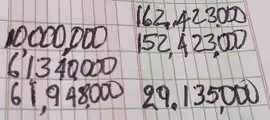 162,423,000
10,000,000
152,423,000
61340,000
61,948,000
29.135,000